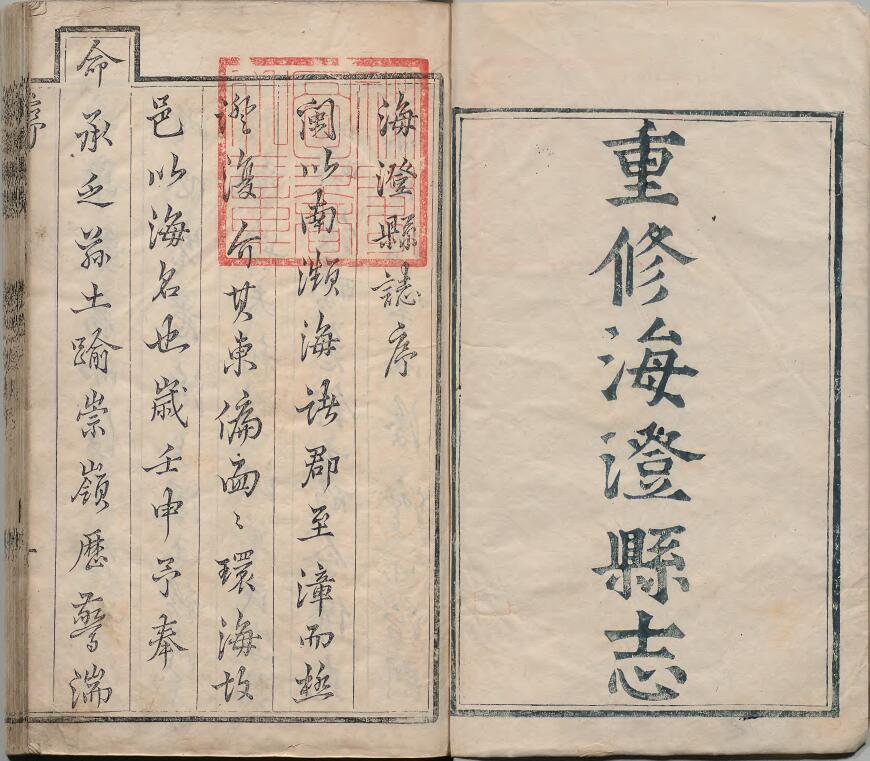 重修海澄縣志
海澄縣誌序
閩以南瀕海諸郡至漳而極
澄復介其東偏面〻環海故
邑以海名也歲壬申予奉
命
承乏茲土踰崇嶺歷驚湍
序